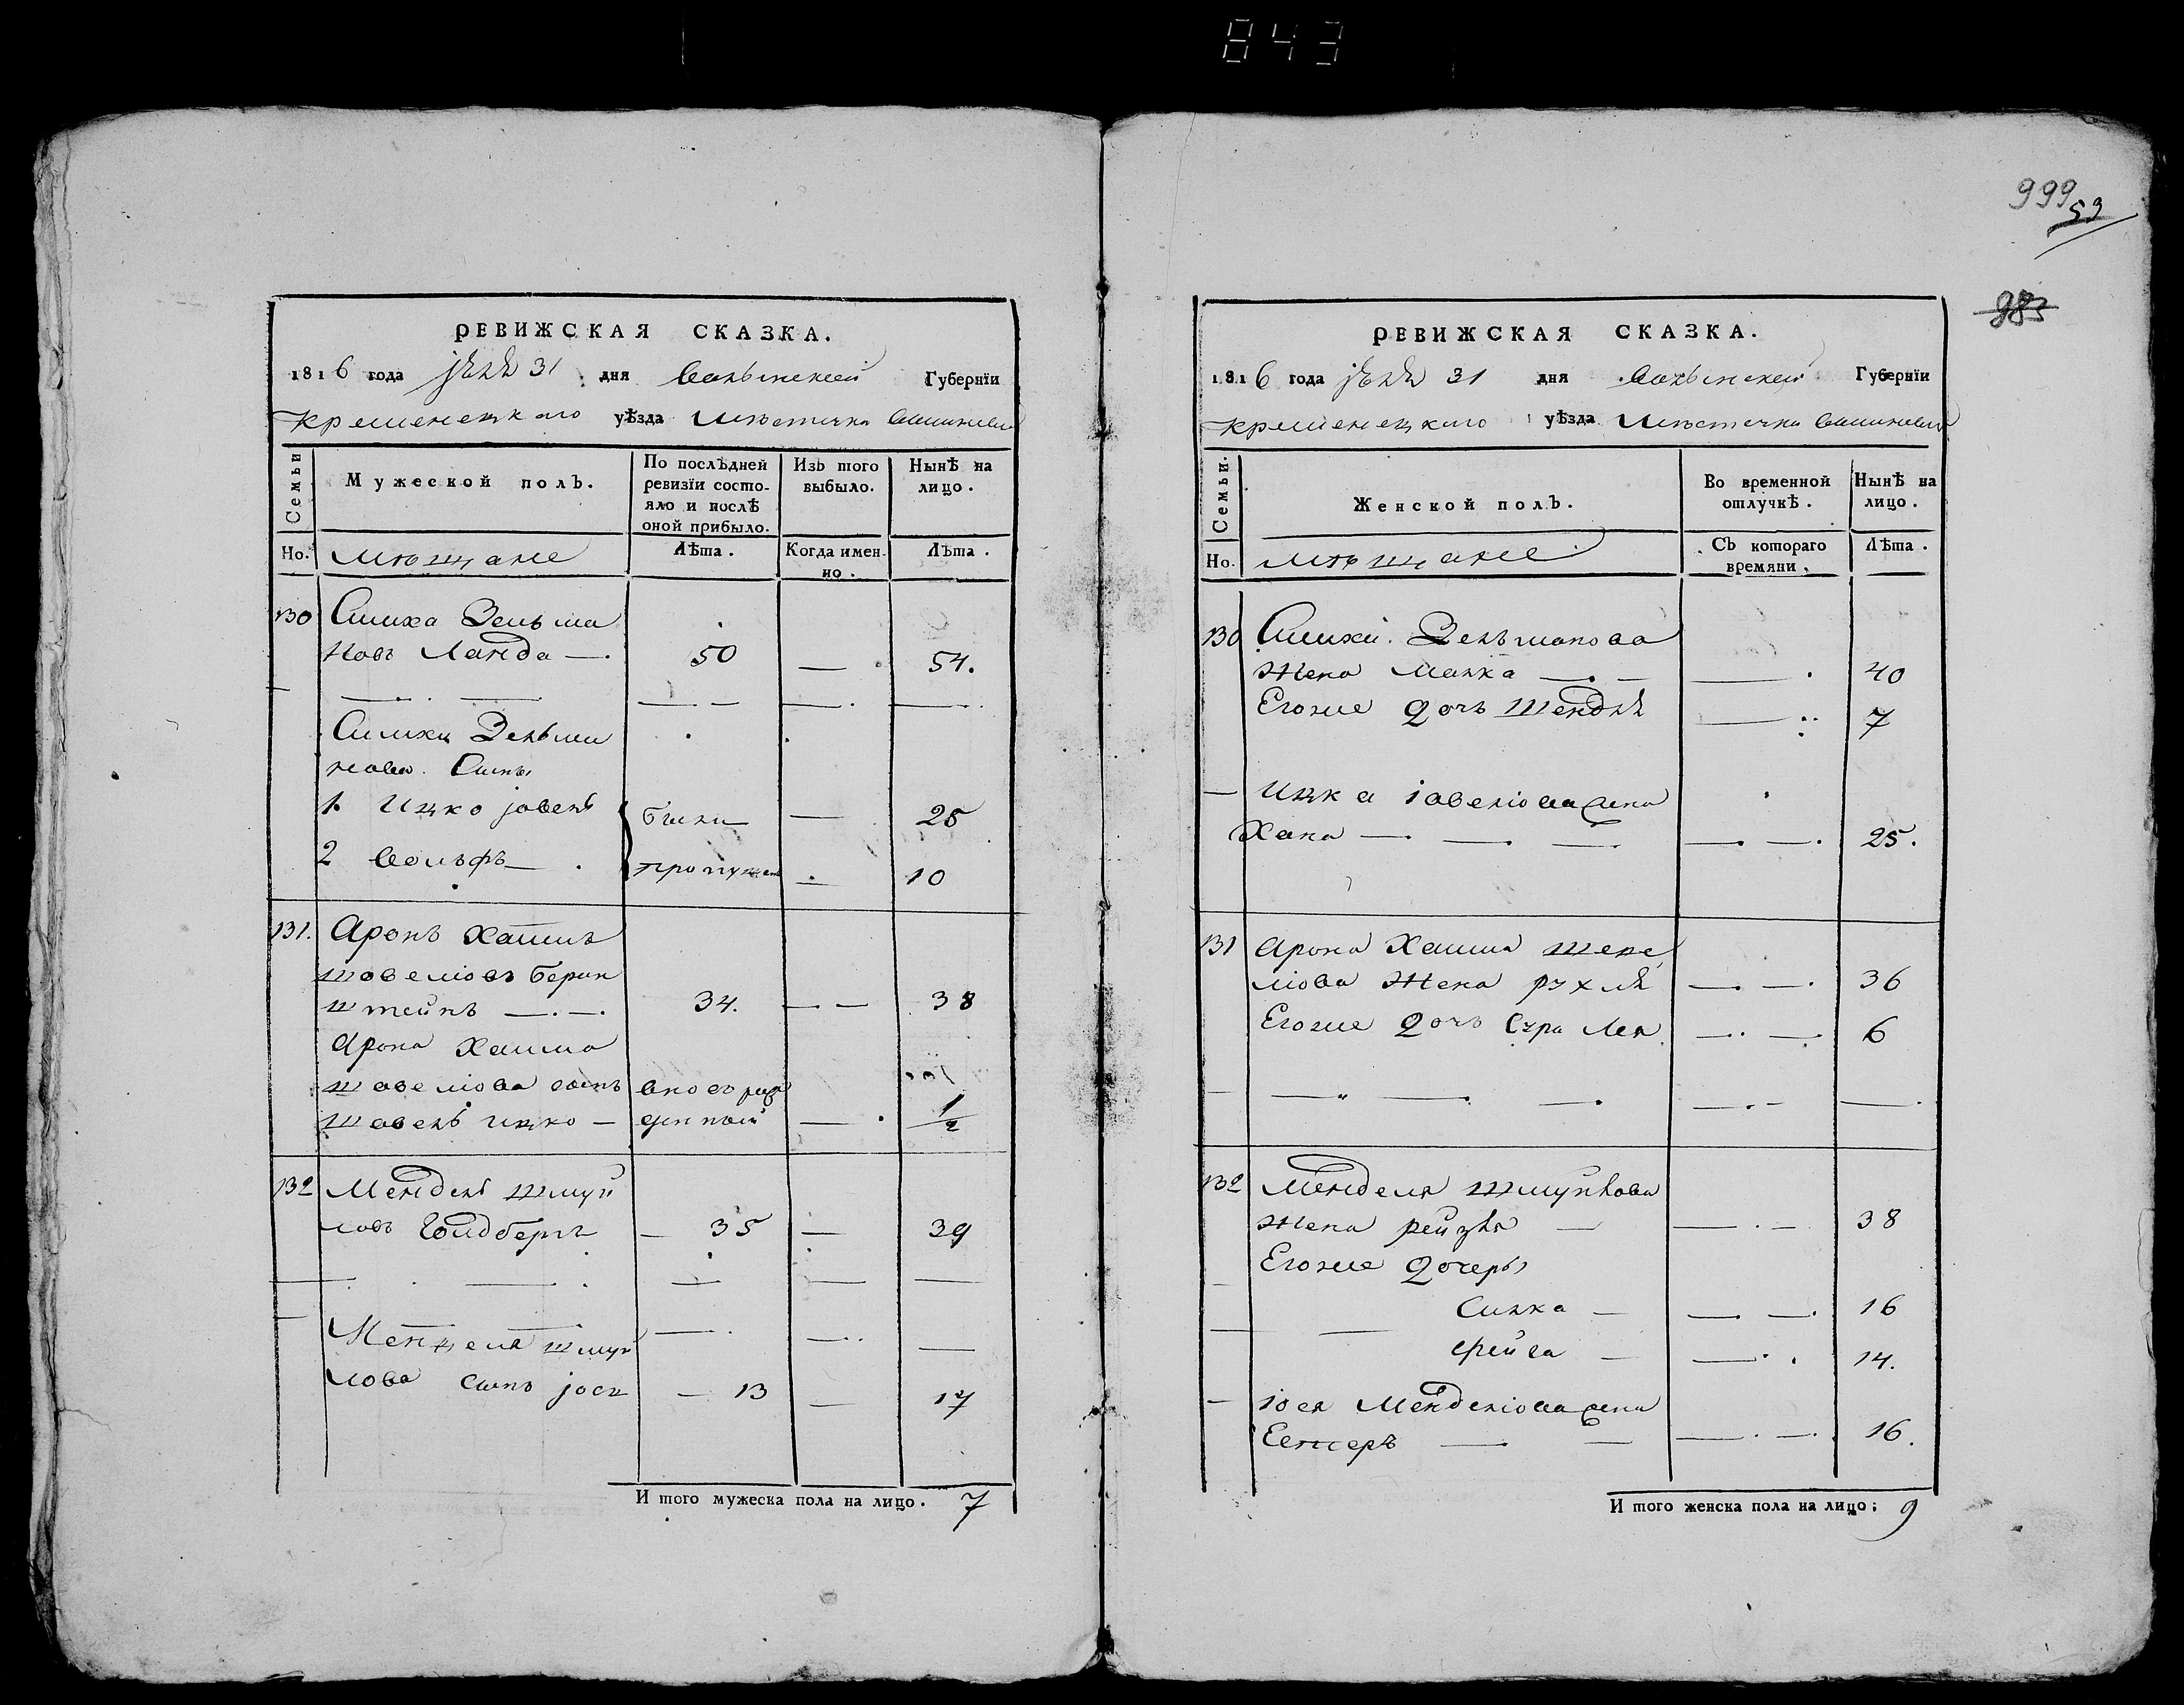 843
999
59
983
РЕВИЖСКАЯ СКАЗКА.
1816 года іюля 31 дня Волынской Губернїи
Кременецкаго уѣзда Мѣстечка Вишневца
Семьи
Мужеской полъ.
По послѣдней ревизїи состо-
яло и послѣ
оной прибыло.
Изъ того
выбыло.
Нынѣ на
лицо.
Но. мѣщане
Лѣта.
Когда имен-
но.
Лѣта.
130 Симха Зельма
новъ Ланда — 50 — 54.
Симхи Зельма
нова Сыны
1. Ицко іовель были — 25
2 Вольфъ — пропущены — 10
131. Аронъ Хаимъ
шовеліовъ Берин
штейнъ — 34. — 38
Арона Хаима
шовеліова сынъ вновьрож
шовель ицко — денный — 1/2
132 Мендель шмуй
ловъ Гольдбергъ — 35 — 39
Менделя шмуй
лова сынъ јось — 13 — 17
И того мужеска пола на лицо. 7
РЕВИЖСКАЯ СКАЗКА.
1816 года іюля 31 дня Волынской Губернїи
Кременецкаго уѣзда Мѣстечка Вишневца
Семьи.
Женской полъ.
Во временной
отлучкѣ.
Нынѣ на
лицо.
Но. мѣщане
Съ котораго
времяни.
Лѣта.
130 Симхи Зельманова
жена Малка — 40
Егоже дочь Шендля — 7
Ицка іовеліова жена
Хана — 25.
131 Арона Хаима шове
ліова жена рухля — 36
Егоже дочь Сура Лея — 6
132 Менделя шмуйлова
жена рейзля — 38
Егоже дочеры
Симка — 16
фейга — 14.
іося Менделіова жена
Естеръ — 16.
И того женска пола на лицо: 9